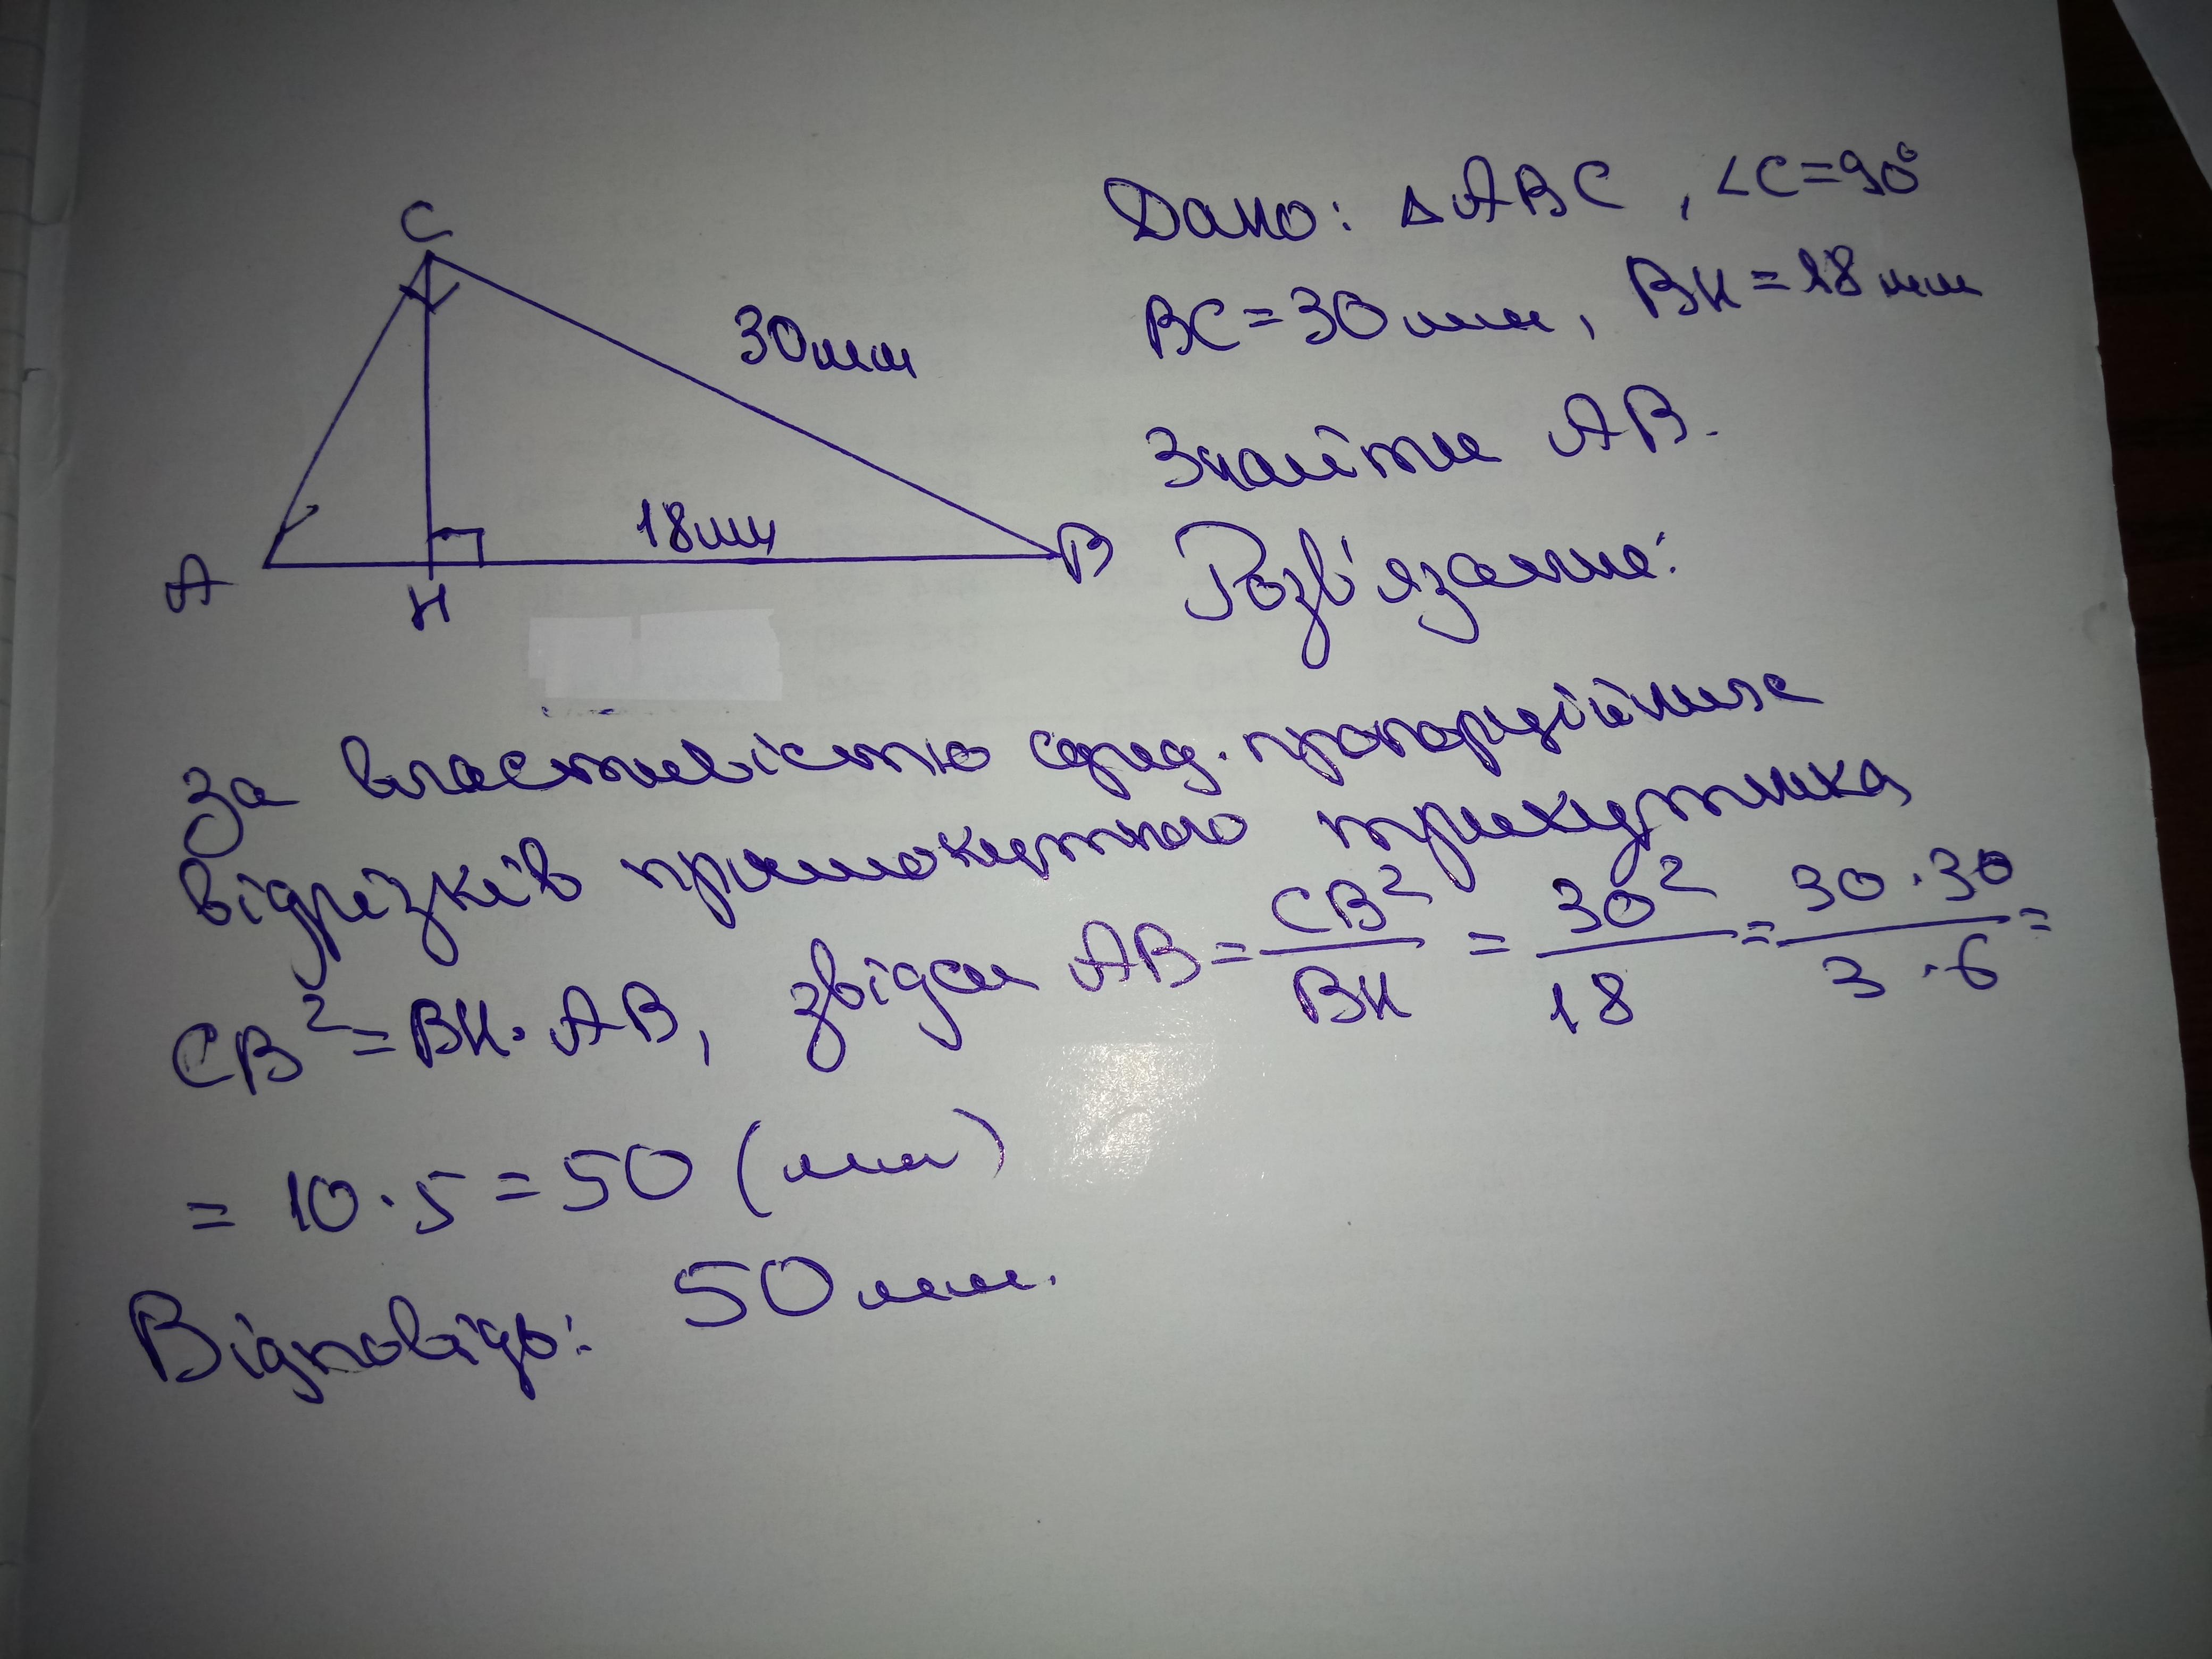 C
30мм
18мм
A
H
B
Дано: △ABC, ∠C=90°
BC=30мм, BH=18мм
Знайти AB.
Розв'язання:
За властивістю сред. пропорційних
відрізків прямокутного трикутника
CB²=BH·AB, звідси AB=CB²/BH=30²/18=30·30/3·6=
=10·5=50 (мм)
Відповідь: 50мм.